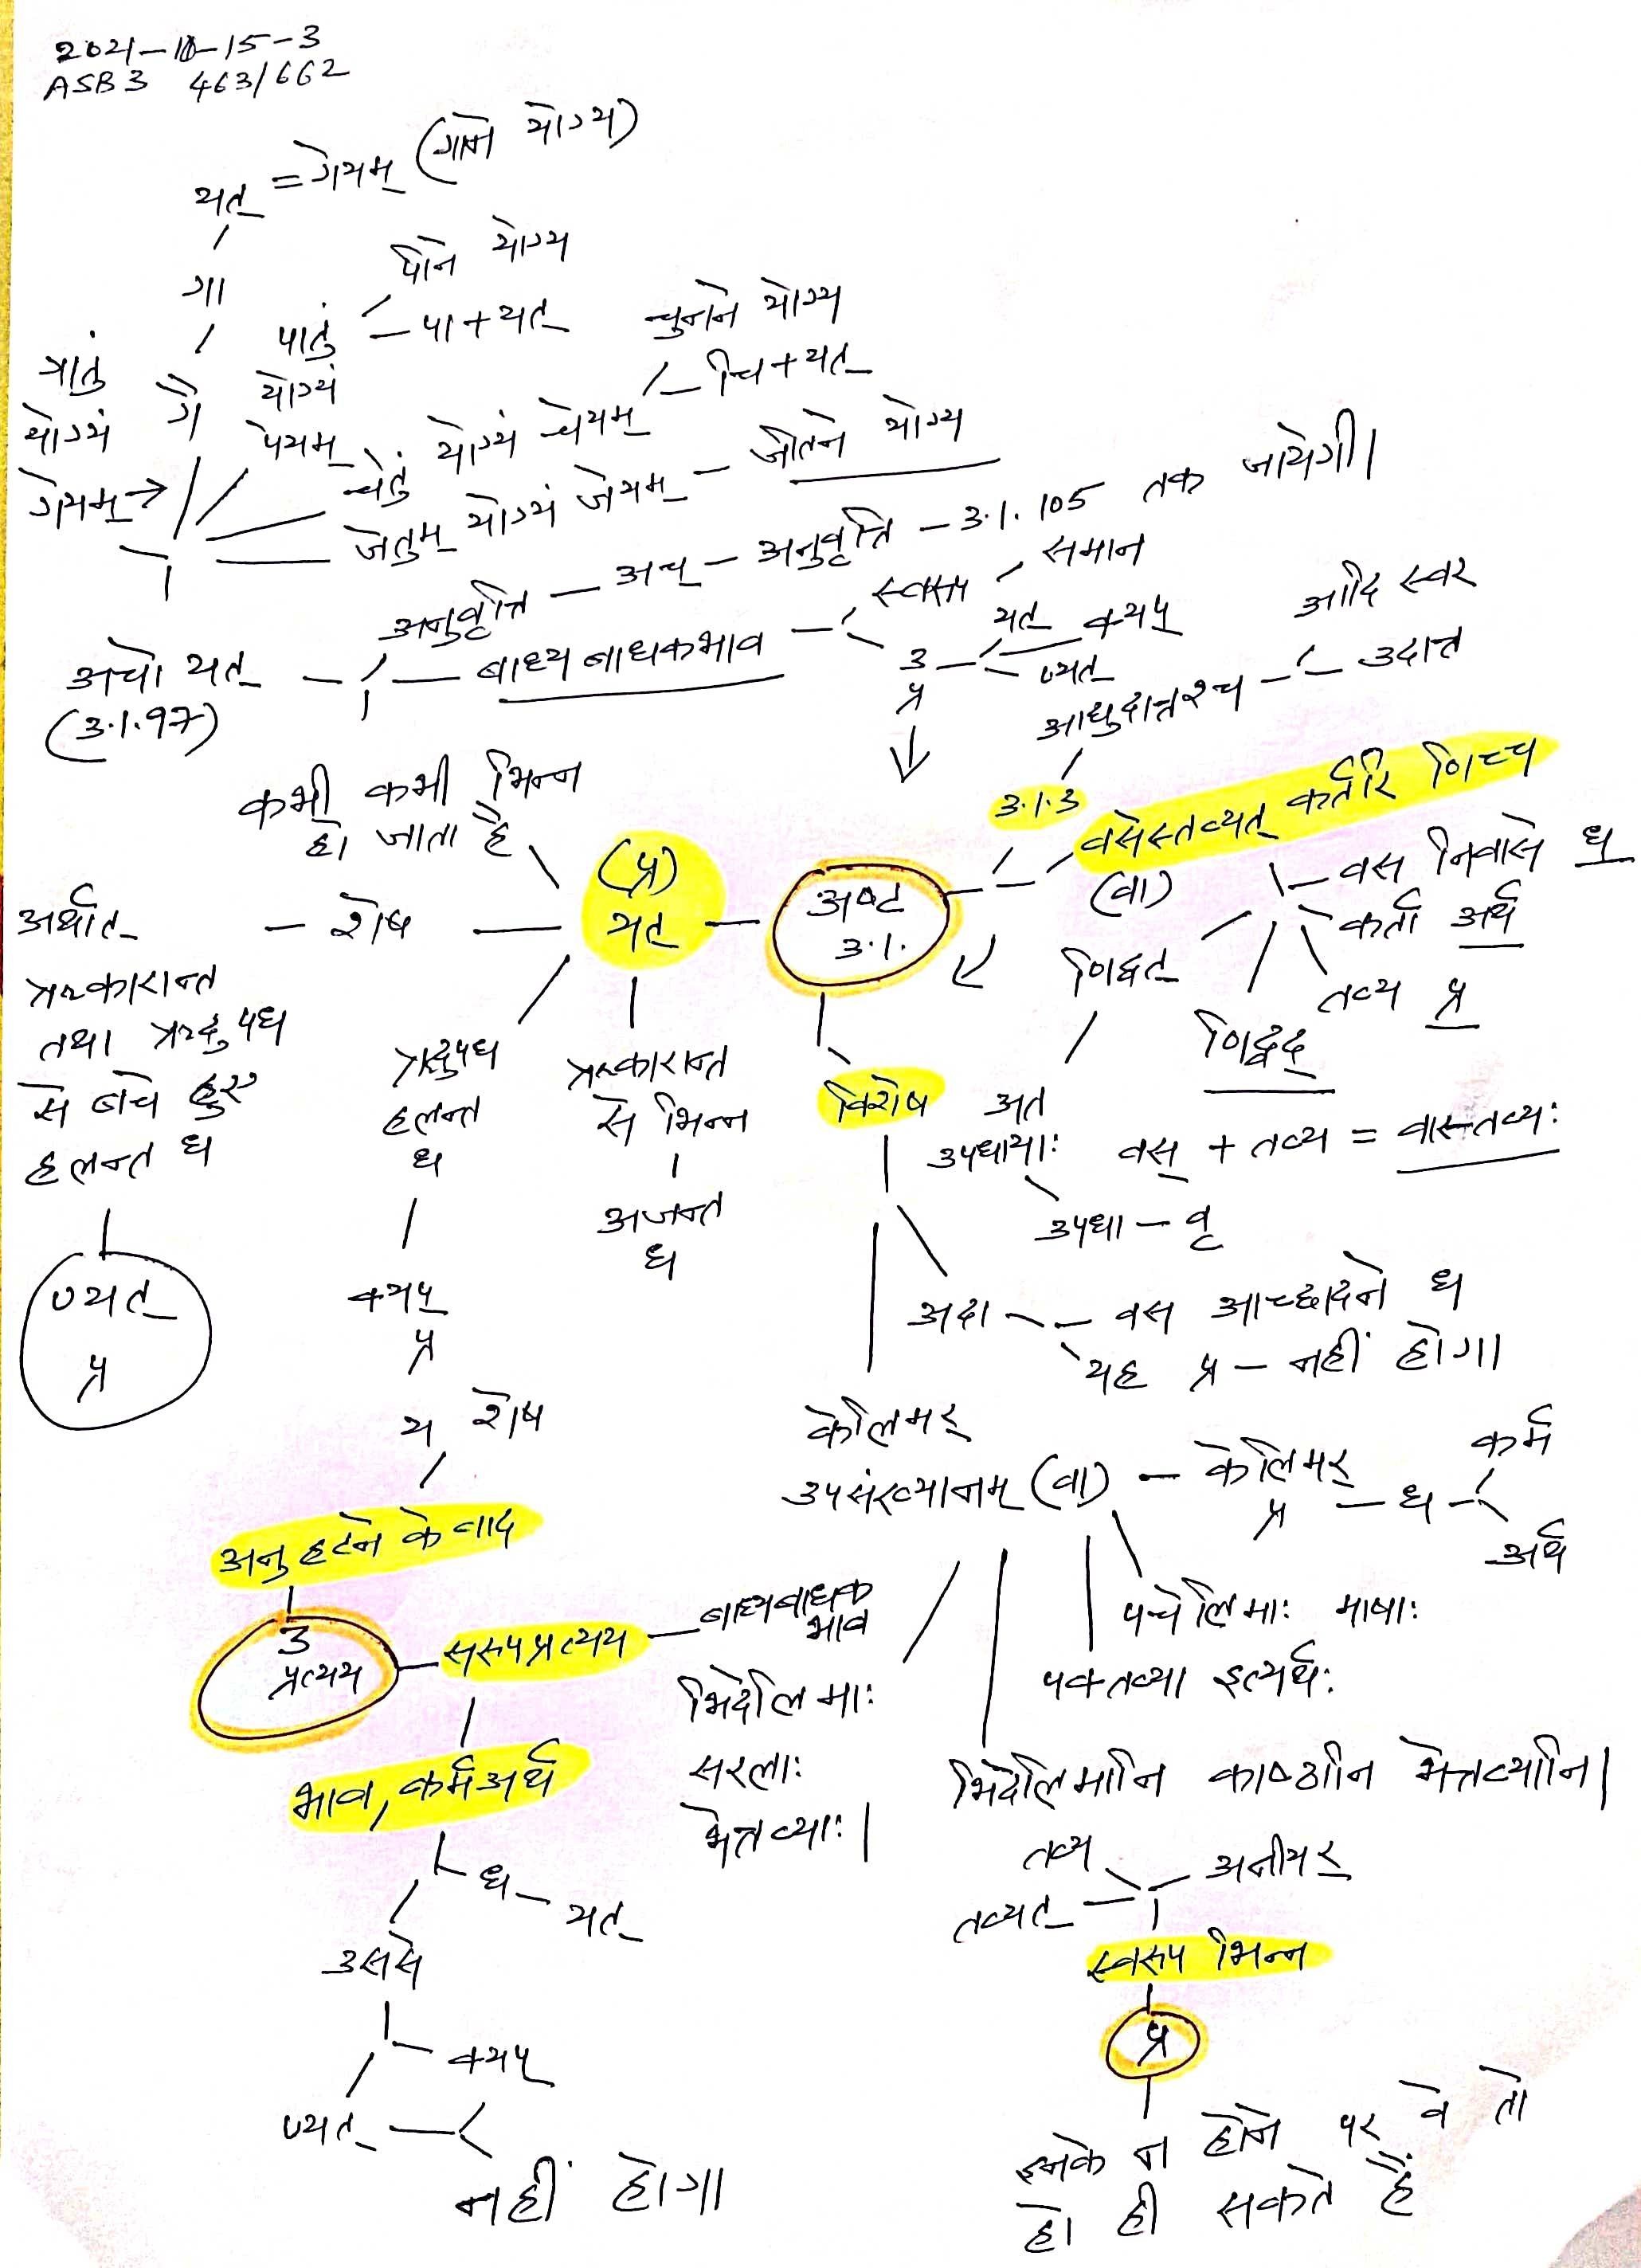 2021-10-15-3
ASB3 463/662
यत् = गेयम् (गाने योग्य)
गा
गै
गातुं
योग्यं
गेयम् →
पीने योग्य
पातुं - पा + यत्
योग्यं
पेयम्
चुनने योग्य
चेतुं योग्यं चेयम् - चि + यत्
जेतुम् योग्यं जेयम् - जीतने योग्य
अनुवृत्ति - अच् - अनुवृत्ति - 3.1.105 तक जायेगी।
अचो यत्
(3.1.97)
बाध्य बाधकभाव
स्वरूप
समान
3
प्र
यत्
क्यप्
ण्यत्
आदि स्वर
उदात्त
आद्युदात्तश्च
3.1.3
वसेस्तव्यत् कर्तरि णिच्च
(वा)
वस निवासे ध
कर्ता अर्थ
तव्य प्र
णिद्वद्
णिद्वत्
अत
उपधायाः
उपधा - वृ
वस् + तव्य = वास्तव्यः
अष्ट
3.1.
(प्र)
यत्
कभी कभी भिन्न
हो जाता है
शेष
अर्थात्
ऋकारान्त
तथा ऋदुपध
से बचे हुए
हलन्त ध
ण्यत्
प्र
ऋदुपध
हलन्त
ध
क्यप्
प्र
य शेष
ऋकारान्त
से भिन्न
अजन्त
ध
विशेष
अदा - वस आच्छादने ध
यह प्र - नहीं होगा
केलिमर्
उपसंख्यानम् (वा) - केलिमर्
प्र - ध
कर्म
अर्थ
पचेलिमाः माषाः
पक्तव्या इत्यर्थः
भिदेलिमानि काष्ठानि भेत्तव्यानि।
भिदेलिमाः
सरलाः
भेत्तव्याः।
अनु हटने के बाद
3
प्रत्यय
सरूप प्रत्यय - बाध्यबाधक
भाव
भाव, कर्म अर्थ
ध - यत्
उससे
क्यप्
ण्यत्
नहीं होगा
तव्य
तव्यत्
अनीयर्
स्वरूप भिन्न
प्र
इनके न होने पर वे तो
हो ही सकते हैं